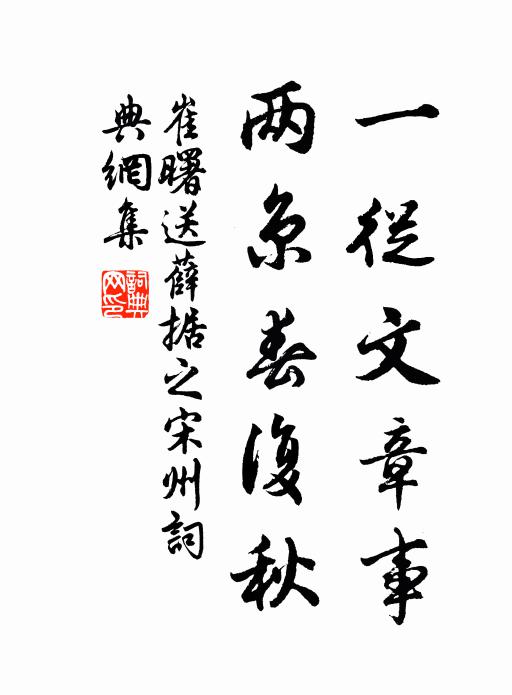 一從文章事
两京春復秋
崔曙送薛据之宋州詞
典網集
詞典网印